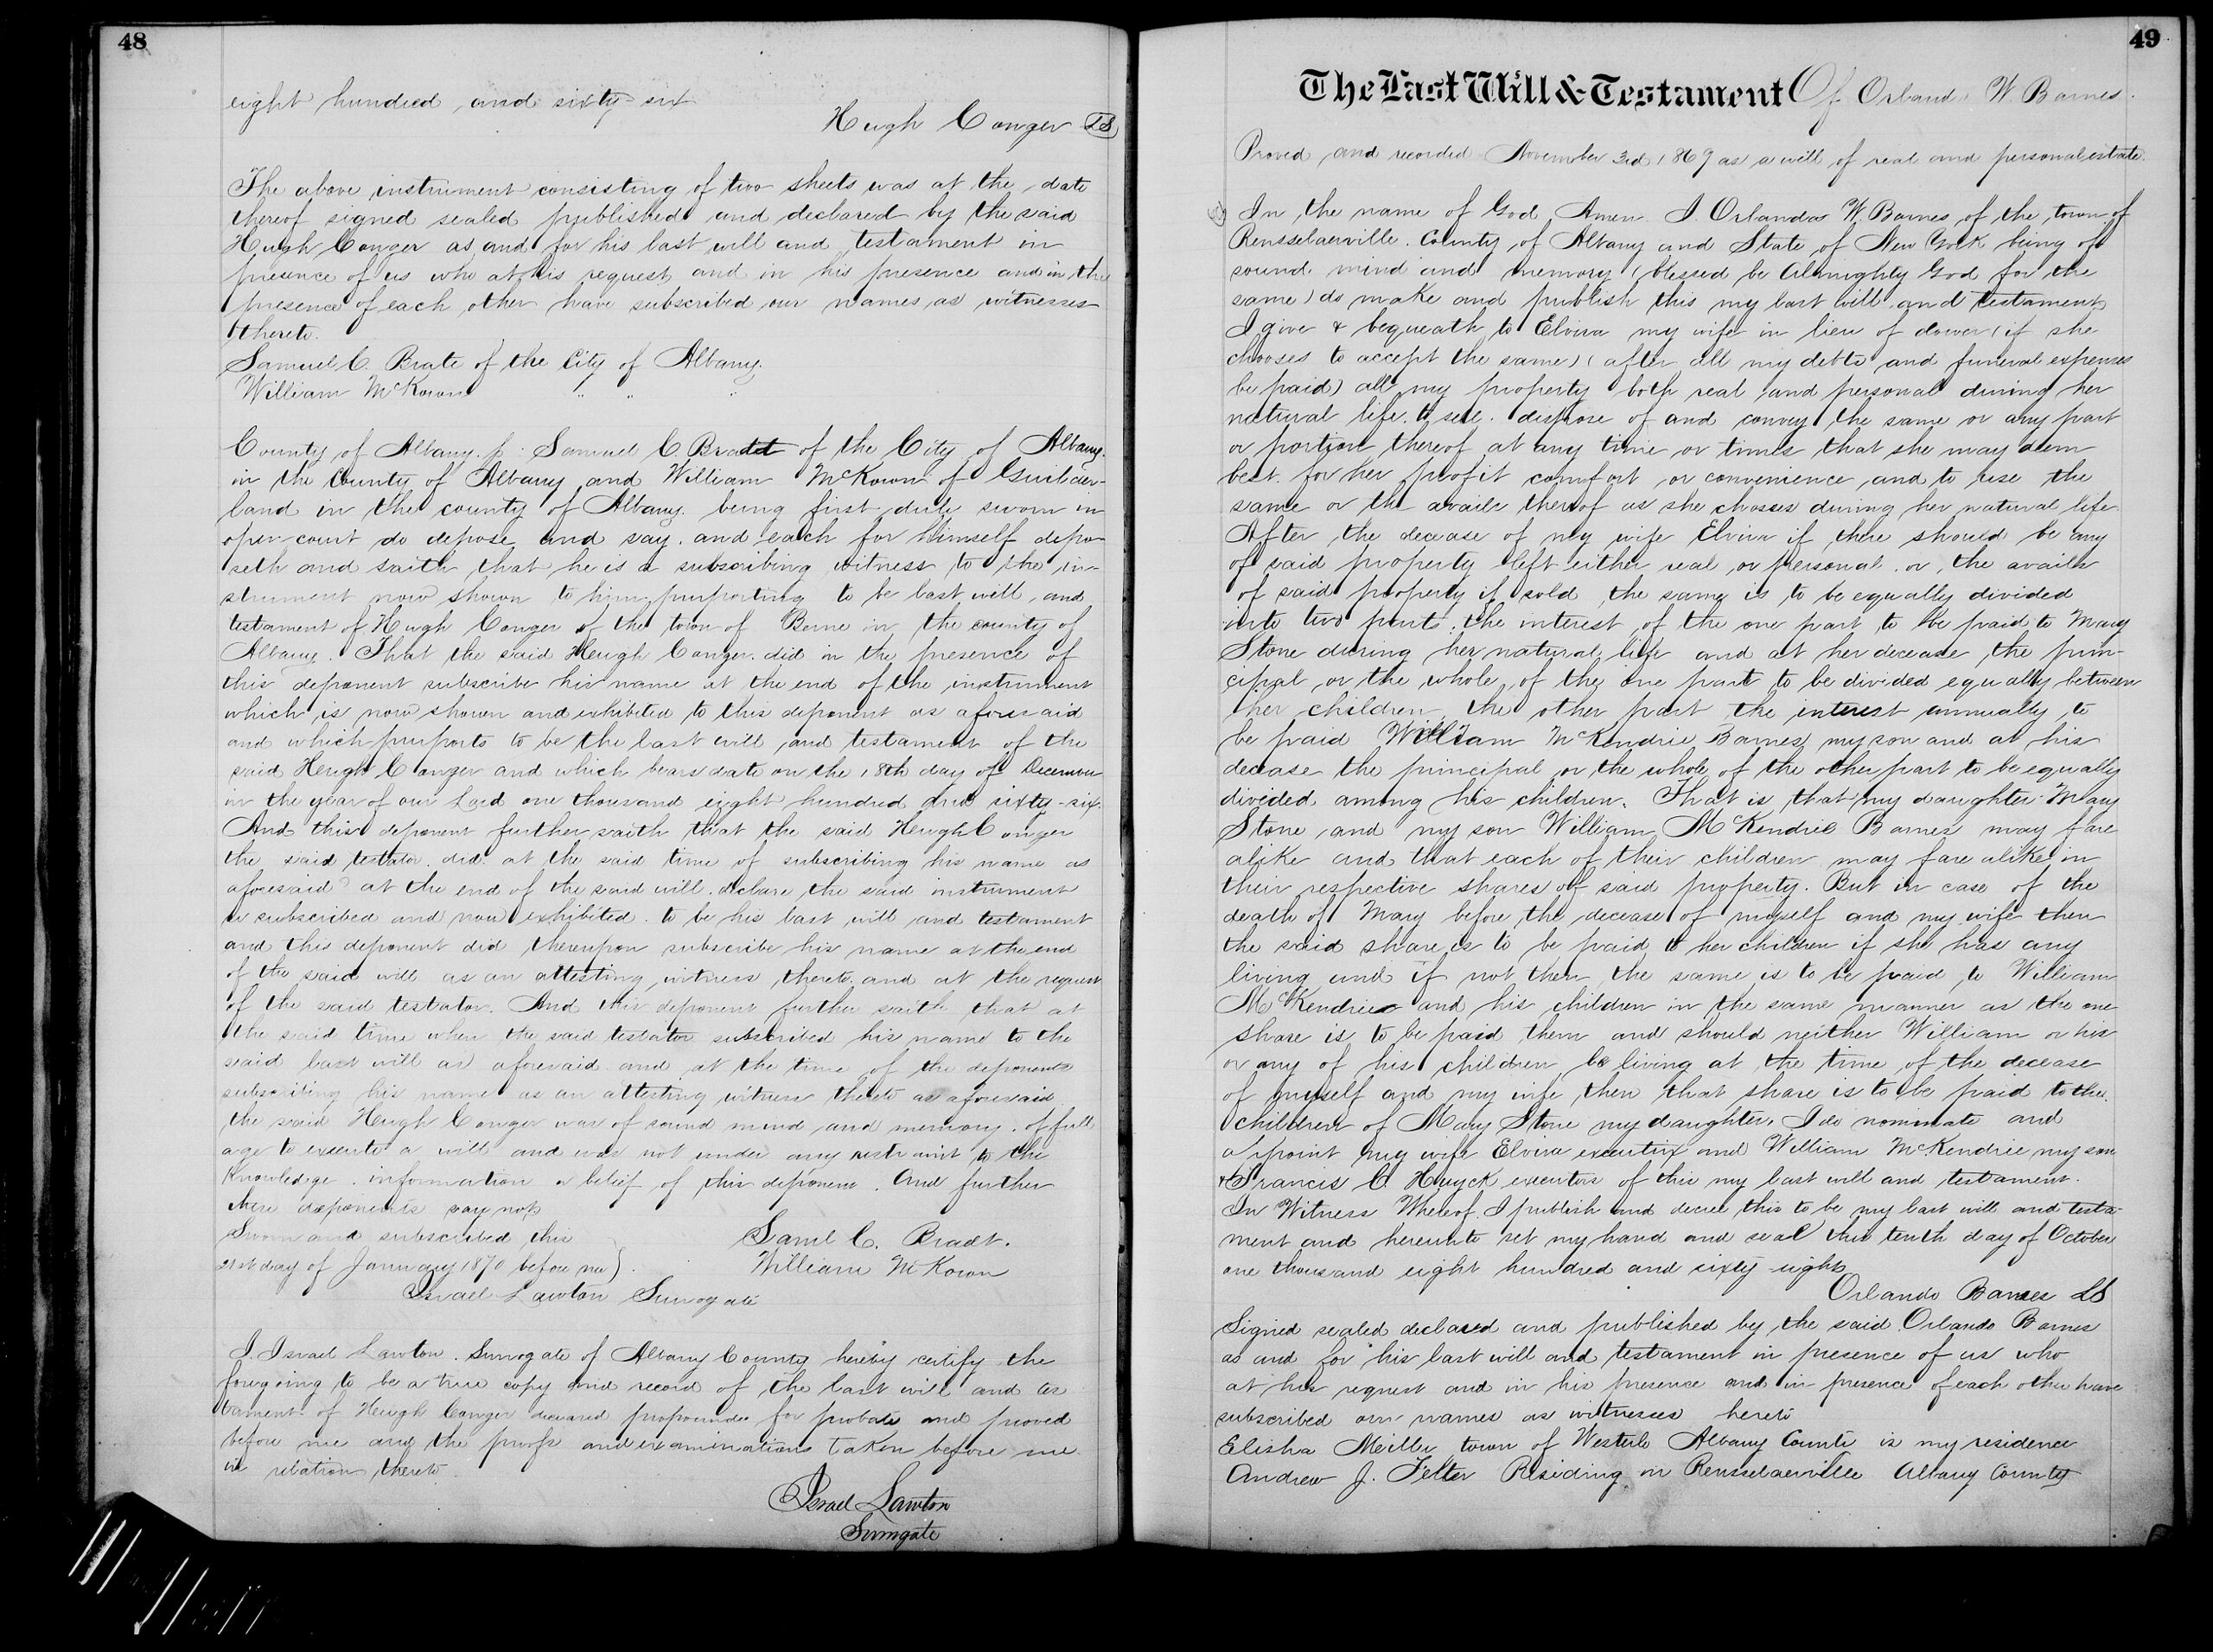 48
eight hundred and sixty-six
Hugh Conger LS
The above instrument consisting of two sheets was at the date
thereof signed sealed published and declared by the said
Hugh Conger as and for his last will and testament in
presence of us who at his request and in his presence and in the
presence of each other have subscribed our names as witnesses
thereto.
Samuel C. Brate of the City of Albany.
William McKown " " "
County of Albany. ss: Samuel C. Bradt of the City of Albany.
in the County of Albany and William McKown of Guilder-
land in the county of Albany. being first duly sworn in
open court do depose and say. and each for himself depo-
seth and saith that he is a subscribing witness to the in-
strument now shown to him, purporting to be last will and
testament of Hugh Conger of the town of Berne in the county of
Albany. That the said Hugh Conger. did in the presence of
this deponent subscribe his name at the end of the instrument
which is now shown and exhibited to this deponent as aforesaid
and which purports to be the last will and testament of the
said Hugh Conger and which bears date on the 18th day of December
in the year of our Lord one thousand eight hundred and sixty-six.
And this deponent further saith that the said Hugh Conger
the said testator. did. at the said time of subscribing his name as
aforesaid at the end of the said will. declare the said instrument
so subscribed and now exhibited. to be his last will and testament
and this deponent did thereupon subscribe his name at the end
of the said will as an attesting witness thereto. and at the request
of the said testator. And this deponent further saith that at
the said time when the said testator subscribed his name to the
said last will as aforesaid and at the time of the deponents
subscribing his name as an attesting witness thereto as aforesaid
the said Hugh Conger was of sound mind and memory. of full
age to execute a will and was not under any restraint to the
knowledge. information or belief of this deponent. And further
these deponents say not
Sworn and subscribed this
21st day of January 1870 before me)
Saml C. Bradt.
William McKown
Israel Lawton Surrogate
I. Israel Lawton. Surrogate of Albany County hereby certify the
foregoing to be a true copy and record of the last will and tes
tament of Hugh Conger deceased propounded for probate and proved
before me and the proofs and examinations taken before me
in relation thereto.
Israel Lawton
Surrogate
49
The Last Will & Testament Of Orlando W. Barnes.
Proved and recorded November 3rd 1869 as a will of real and personal estate.
In the name of God Amen. I. Orlando W. Barnes of the town of
Rensselaerville. County of Albany and State of New York being of
sound mind and memory (blessed be Almighty God for the
same) do make and publish this my last will and testament
I give & bequeath to Elvira my wife in lieu of dower (if she
chooses to accept the same) (after all my debts and funeral expenses
be paid) all my property both real and personal during her
natural life. to sell. dispose of and convey the same or any part
or portion thereof at any time or times that she may deem
best for her profit comfort or convenience and to use the
same or the avails thereof as she chooses during her natural life.
After the decease of my wife Elvira if there should be any
of said property left either real or personal. or the avails
of said property if sold the same is to be equally divided
into two parts. the interest of the one part to be paid to Mary
Stone during her natural life and at her decease the prin-
cipal or the whole of the one part to be divided equally between
her children the other part the interest annually to
be paid William McKendrie Barnes my son and at his
decease the principal or the whole of the other part to be equally
divided among his children. That is that my daughter Mary
Stone and my son William McKendrie Barnes may fare
alike and that each of their children may fare alike in
their respective shares of said property. But in case of the
death of Mary before the decease of myself and my wife then
the said share is to be paid to her children if she has any
living and if not then the same is to be paid to William
McKendrie and his children in the same manner as the one
share is to be paid them and should neither William or his
or any of his children be living at the time of the decease
of myself and my wife then that share is to be paid to the
children of Mary Stone my daughter. I do nominate and
appoint my wife Elvira executrix and William McKendrie my son
& Francis C Huyck executors of this my last will and testament.
In Witness Whereof. I publish and decree this to be my last will and testa-
ment and hereunto set my hand and seal this tenth day of October
one thousand eight hundred and sixty-eight
Orlando Barnes LS
Signed sealed declared and published by the said Orlando Barnes
as and for his last will and testament in presence of us who
at his request and in his presence and in presence of each other have
subscribed our names as witnesses hereto
Elisha Miller town of Westerlo Albany County is my residence
Andrew J. Felter Residing in Rensselaerville Albany County